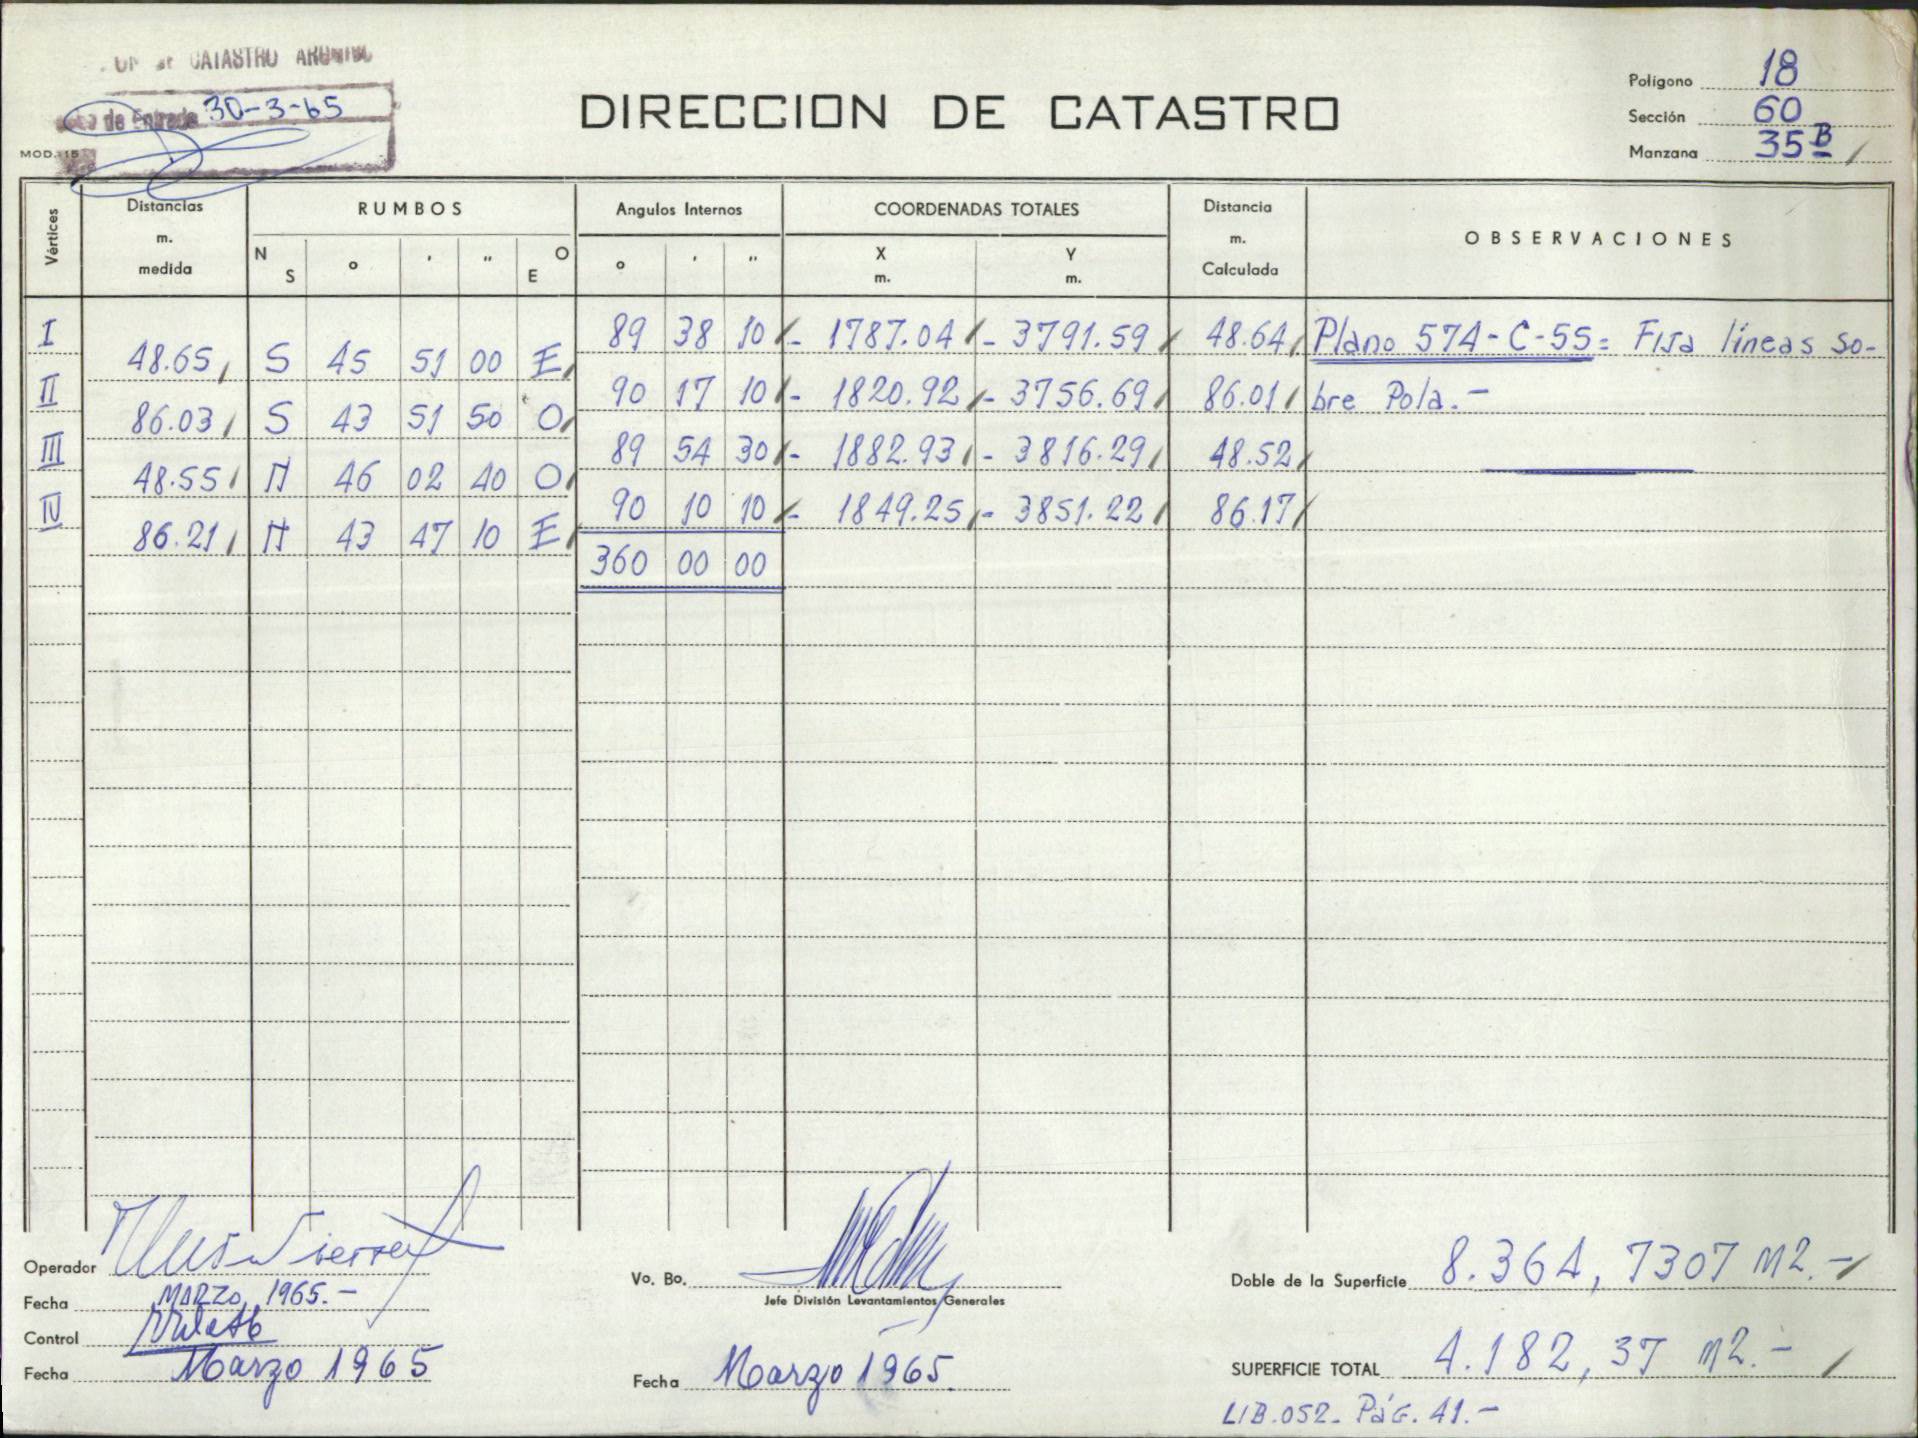 CATASTRO ARCHIVO
de Entrada 30-3-65
MOD. 15
DIRECCION DE CATASTRO
Polígono 18
Sección 60
Manzana 35 B
Vértices
Distancias m. medida
RUMBOS
N S ° ' " O E
Angulos Internos
° ' "
COORDENADAS TOTALES
X m. Y m.
Distancia m. Calculada
OBSERVACIONES
I 89 38 10 - 1787.04 - 3791.59 48.64 Plano 574-C-55= Fija líneas so-
48.65 S 45 51 00 E
II 90 17 10 - 1820.92 - 3756.69 86.01 bre Pola.-
86.03 S 43 51 50 O
III 89 54 30 - 1882.93 - 3816.29 48.52
48.55 N 46 02 40 O
IV 90 10 10 - 1849.25 - 3851.22 86.17
86.21 N 43 47 10 E
360 00 00
Operador
Fecha MARZO 1965.-
Control
Fecha Marzo 1965
Vo. Bo.
Jefe División Levantamientos Generales
Fecha Marzo 1965.
Doble de la Superficie 8.364,7307 M2.-
SUPERFICIE TOTAL 4.182,37 M2.-
LIB.052- PÁG. 41.-